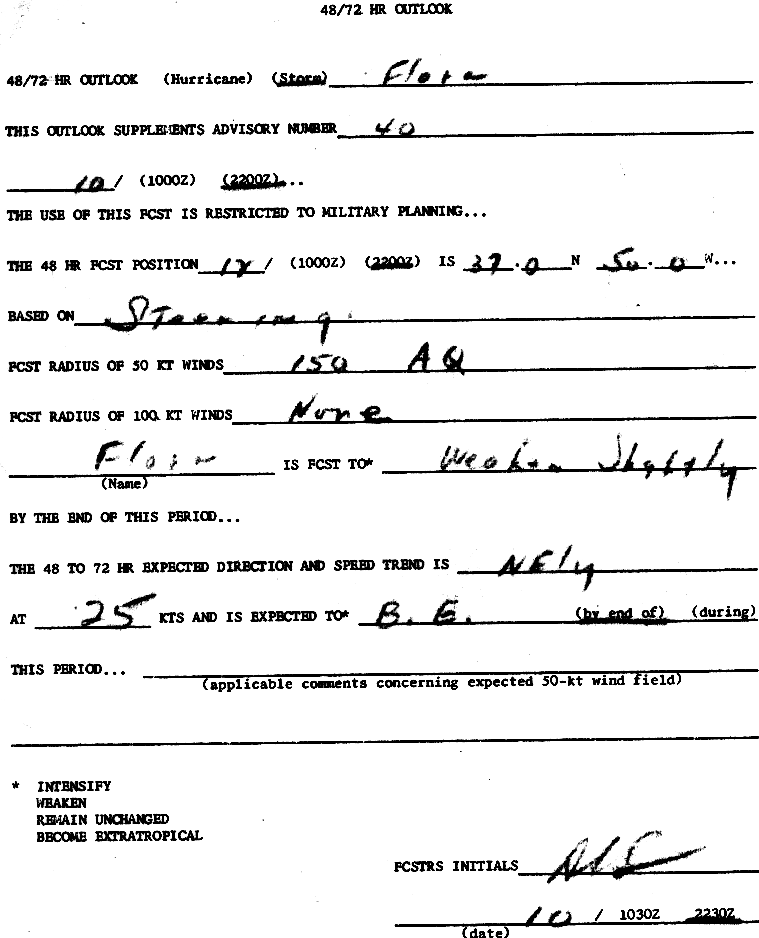 48/72 HR OUTLOOK
48/72 HR OUTLOOK (Hurricane) (Storm) Flora
THIS OUTLOOK SUPPLEMENTS ADVISORY NUMBER 40
10/ (1000Z) (2200Z)...
THE USE OF THIS FCST IS RESTRICTED TO MILITARY PLANNING...
THE 48 HR FCST POSITION 12/ (1000Z) (2200Z) IS 37.0 N 50.0 W...
BASED ON Steering
FCST RADIUS OF 50 KT WINDS 150 AQ
FCST RADIUS OF 100 KT WINDS None
Flora IS FCST TO* Weaken Slightly
(Name)
BY THE END OF THIS PERIOD...
THE 48 TO 72 HR EXPECTED DIRECTION AND SPEED TREND IS NEly
AT 25 KTS AND IS EXPECTED TO* B.E. (by end of) (during)
THIS PERIOD...
(applicable comments concerning expected 50-kt wind field)
* INTENSIFY
WEAKEN
REMAIN UNCHANGED
BECOME EXTRATROPICAL
FCSTRS INITIALS
10 / 1030Z 2230Z
(date)